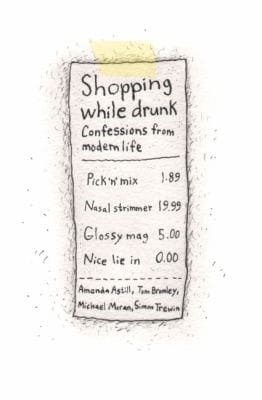 Shopping
while drunk
Confessions from
modern life
Pick 'n' mix 1.89
Nasal strimmer 19.99
Glossy mag 5.00
Nice lie in 0.00
Amanda Astill, Tom Bromley,
Michael Moran, Simon Trewin